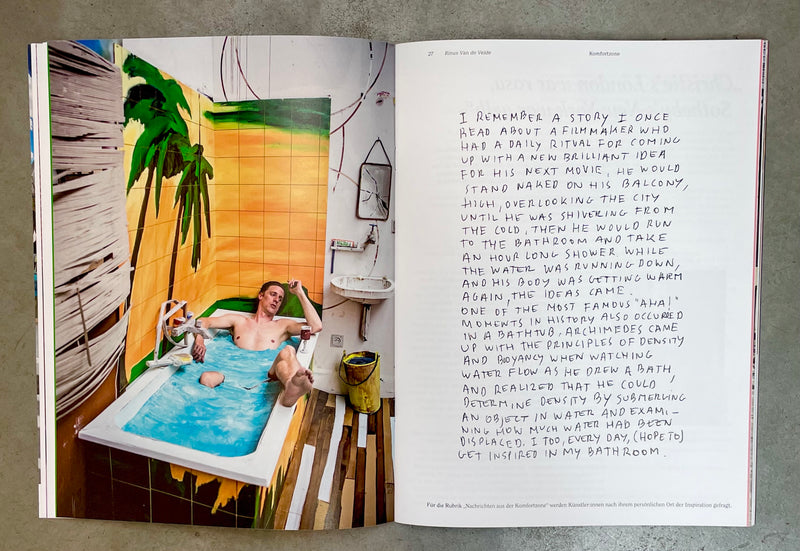 27
Rinus Van de Velde
Komfortzone
I REMEMBER A STORY I ONCE
READ ABOUT A FILMMAKER WHO
HAD A DAILY RITUAL FOR COMING
UP WITH A NEW BRILLIANT IDEA
FOR HIS NEXT MOVIE, HE WOULD
STAND NAKED ON HIS BALCONY,
HIGH, OVERLOOKING THE CITY
UNTIL HE WAS SHIVERING FROM
THE COLD, THEN HE WOULD RUN
TO THE BATHROOM AND TAKE
AN HOUR LONG SHOWER WHILE
THE WATER WAS RUNNING DOWN,
AND HIS BODY WAS GETTING WARM
AGAIN, THE IDEAS CAME.
ONE OF THE MOST FAMOUS "AHA!"
MOMENTS IN HISTORY ALSO OCCURRED
IN A BATHTUB, ARCHIMEDES CAME
UP WITH THE PRINCIPLES OF DENSITY
AND BUOYANCY WHEN WATCHING
WATER FLOW AS HE DREW A BATH,
AND REALIZED THAT HE COULD
DETERMINE DENSITY BY SUBMERGING
AN OBJECT IN WATER AND EXAMI-
NING HOW MUCH WATER HAD BEEN
DISPLACED. I TOO, EVERY DAY, (HOPE TO)
GET INSPIRED IN MY BATHROOM.
Für die Rubrik „Nachrichten aus der Komfortzone" werden Künstler:innen nach ihrem persönlichen Ort der Inspiration gefragt.